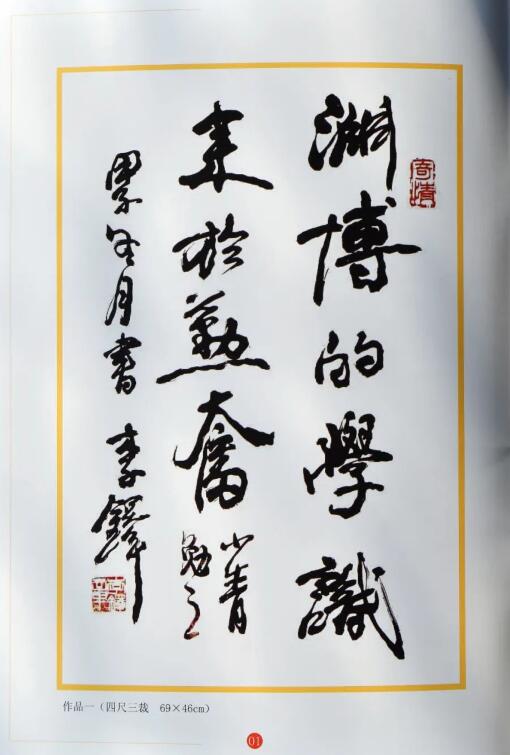 寄情
渊博的學識
来於勤奮
小青
勉之
月書 李鐸
作品一（四尺三裁 69×46cm）
01